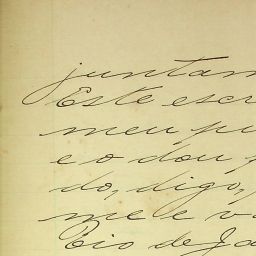 juntam
Este escr
meu pu
e o dou p
do, digo,
me e va
Rio de Ja